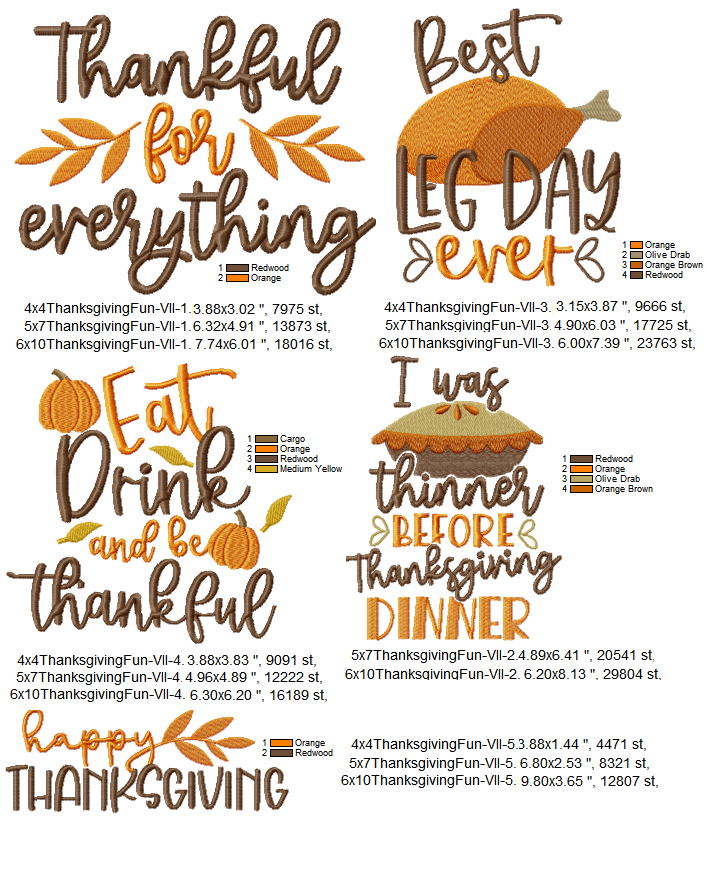 Thankful
for
everything
1 Redwood
2 Orange
4x4ThanksgivingFun-VII-1. 3.88x3.02 ", 7975 st,
5x7ThanksgivingFun-VII-1. 6.32x4.91 ", 13873 st,
6x10ThanksgivingFun-VII-1. 7.74x6.01 ", 18016 st,
Best
LEG DAY
ever
1 Orange
2 Olive Drab
3 Orange Brown
4 Redwood
4x4ThanksgivingFun-VII-3. 3.15x3.87 ", 9666 st,
5x7ThanksgivingFun-VII-3. 4.90x6.03 ", 17725 st,
6x10ThanksgivingFun-VII-3. 6.00x7.39 ", 23763 st,
Eat
Drink
and be
thankful
1 Cargo
2 Orange
3 Redwood
4 Medium Yellow
4x4ThanksgivingFun-VII-4. 3.88x3.83 ", 9091 st,
5x7ThanksgivingFun-VII-4. 4.96x4.89 ", 12222 st,
6x10ThanksgivingFun-VII-4. 6.30x6.20 ", 16189 st,
I was
thinner
BEFORE
Thanksgiving
DINNER
1 Redwood
2 Orange
3 Olive Drab
4 Orange Brown
5x7ThanksgivingFun-VII-2. 4.89x6.41 ", 20541 st,
6x10ThanksgivingFun-VII-2. 6.20x8.13 ", 29804 st,
happy
THANKSGIVING
1 Orange
2 Redwood
4x4ThanksgivingFun-VII-5. 3.88x1.44 ", 4471 st,
5x7ThanksgivingFun-VII-5. 6.80x2.53 ", 8321 st,
6x10ThanksgivingFun-VII-5. 9.80x3.65 ", 12807 st,